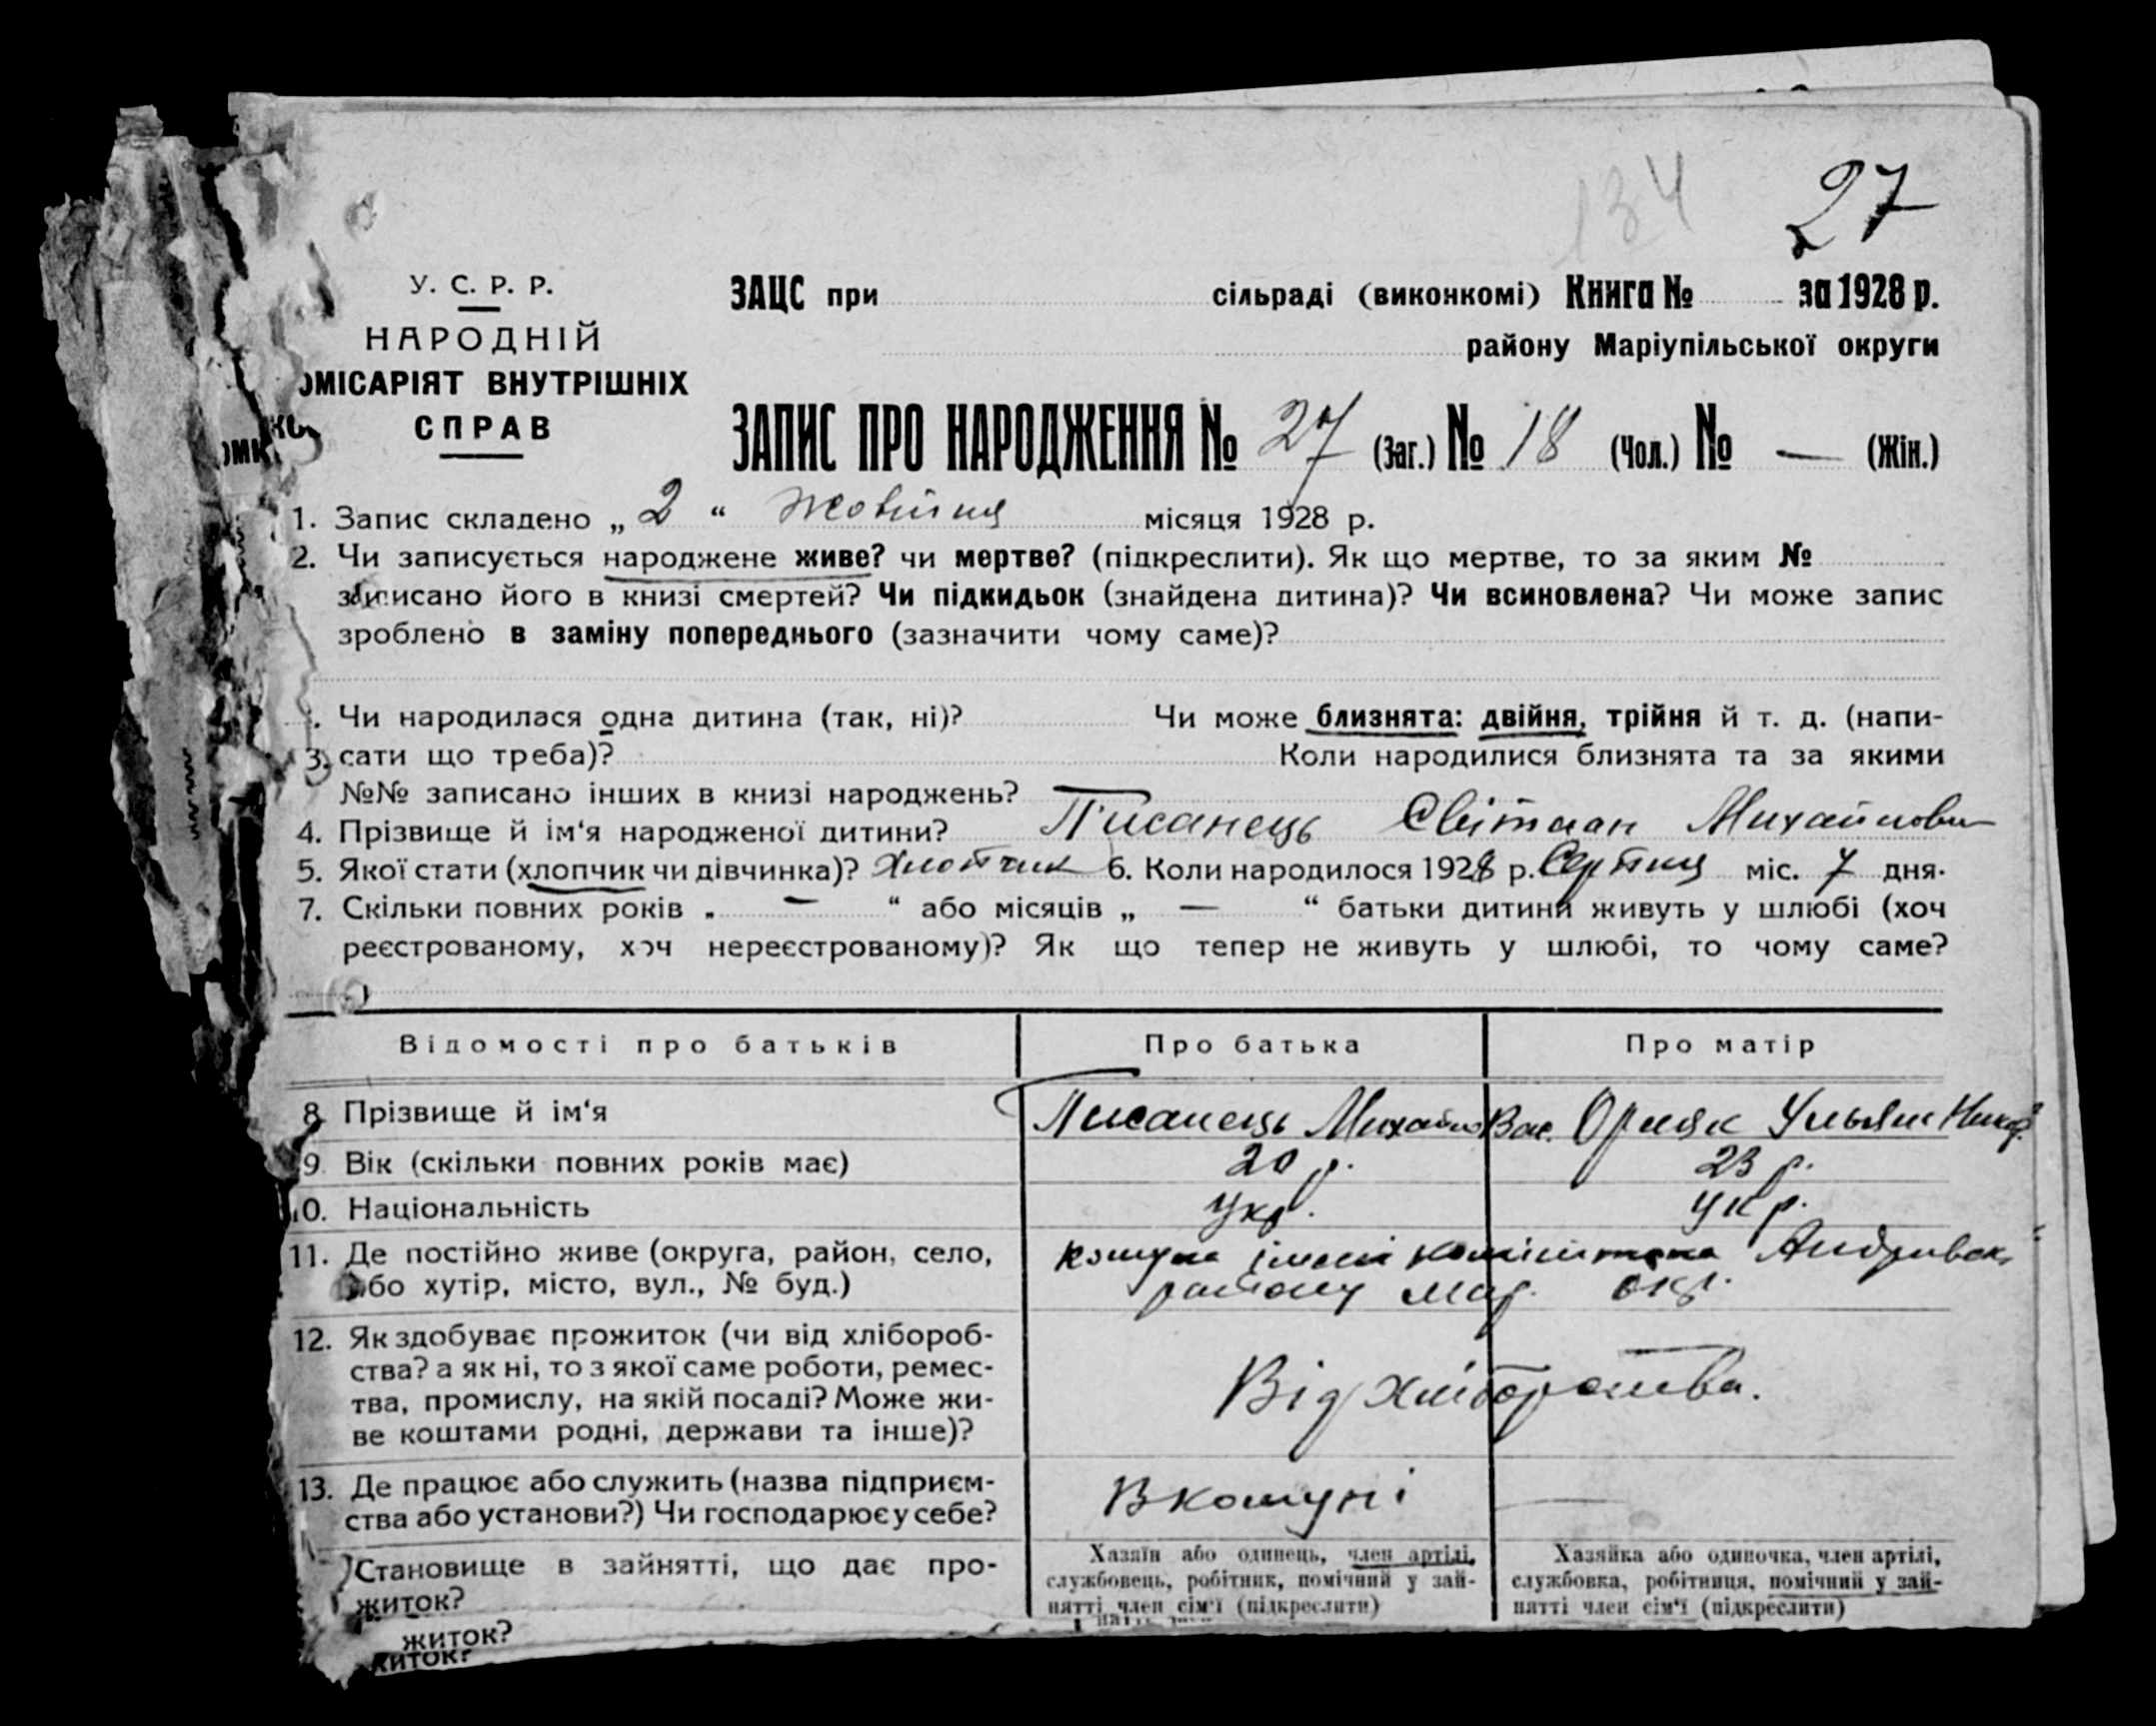 134
27
У. С. Р. Р.
НАРОДНІЙ
ОМІСАРІЯТ ВНУТРІШНІХ
СПРАВ
ЗАЦС при сільраді (виконкомі) Книга № за 1928 р.
району Маріупільської округи
ЗАПИС ПРО НАРОДЖЕННЯ № 27 (Заг.) № 18 (Чол.) № — (Жін.)
1. Запис складено „ 2 “ Жовтня місяця 1928 р.
2. Чи записується народжене живе? чи мертве? (підкреслити). Як що мертве, то за яким №
записано його в книзі смертей? Чи підкидьок (знайдена дитина)? Чи всиновлена? Чи може запис
зроблено в заміну попереднього (зазначити чому саме)?
. Чи народилася одна дитина (так, ні)? Чи може близнята: двійня, трійня й т. д. (напи-
3. сати що треба)? Коли народилися близнята та за якими
№№ записано інших в книзі народжень?
4. Прізвище й ім‘я народженої дитини? Писанець Світлан Михайлович
5. Якої стати (хлопчик чи дівчинка)? Хлопчик 6. Коли народилося 1928 р. Серпня міс. 7 дня.
7. Скільки повних років „ — “ або місяців „ — “ батьки дитини живуть у шлюбі (хоч
реєстрованому, хоч нереєстрованому)? Як що тепер не живуть у шлюбі, то чому саме?
Відомості про батьків Про батька Про матір
8. Прізвище й ім‘я Писанець Михайло Вас. Ульян Никф.
9. Вік (скільки повних років має) 20 р. 23 р.
10. Національність Укр. Укр.
11. Де постійно живе (округа, район, село, комуна імені Андрівськ
або хутір, місто, вул., № буд.) району Мар. окр.
12. Як здобуває прожиток (чи від хлібороб-
ства? а як ні, то з якої саме роботи, ремес-
тва, промислу, на якій посаді? Може жи-
ве коштами родні, держави та інше)?
Від хліборобства.
13. Де працює або служить (назва підприєм-
ства або установи?) Чи господарює у себе?
В комуні —
Становище в зайнятті, що дає про-
житок?
Хазяїн або одинець, член артілі,
службовець, робітник, помічний у зай-
нятті член сім‘ї (підкреслити)
Хазяйка або одиночка, член артілі,
службовка, робітниця, помічний у зай-
нятті член сім‘ї (підкреслити)
житок?
житок?